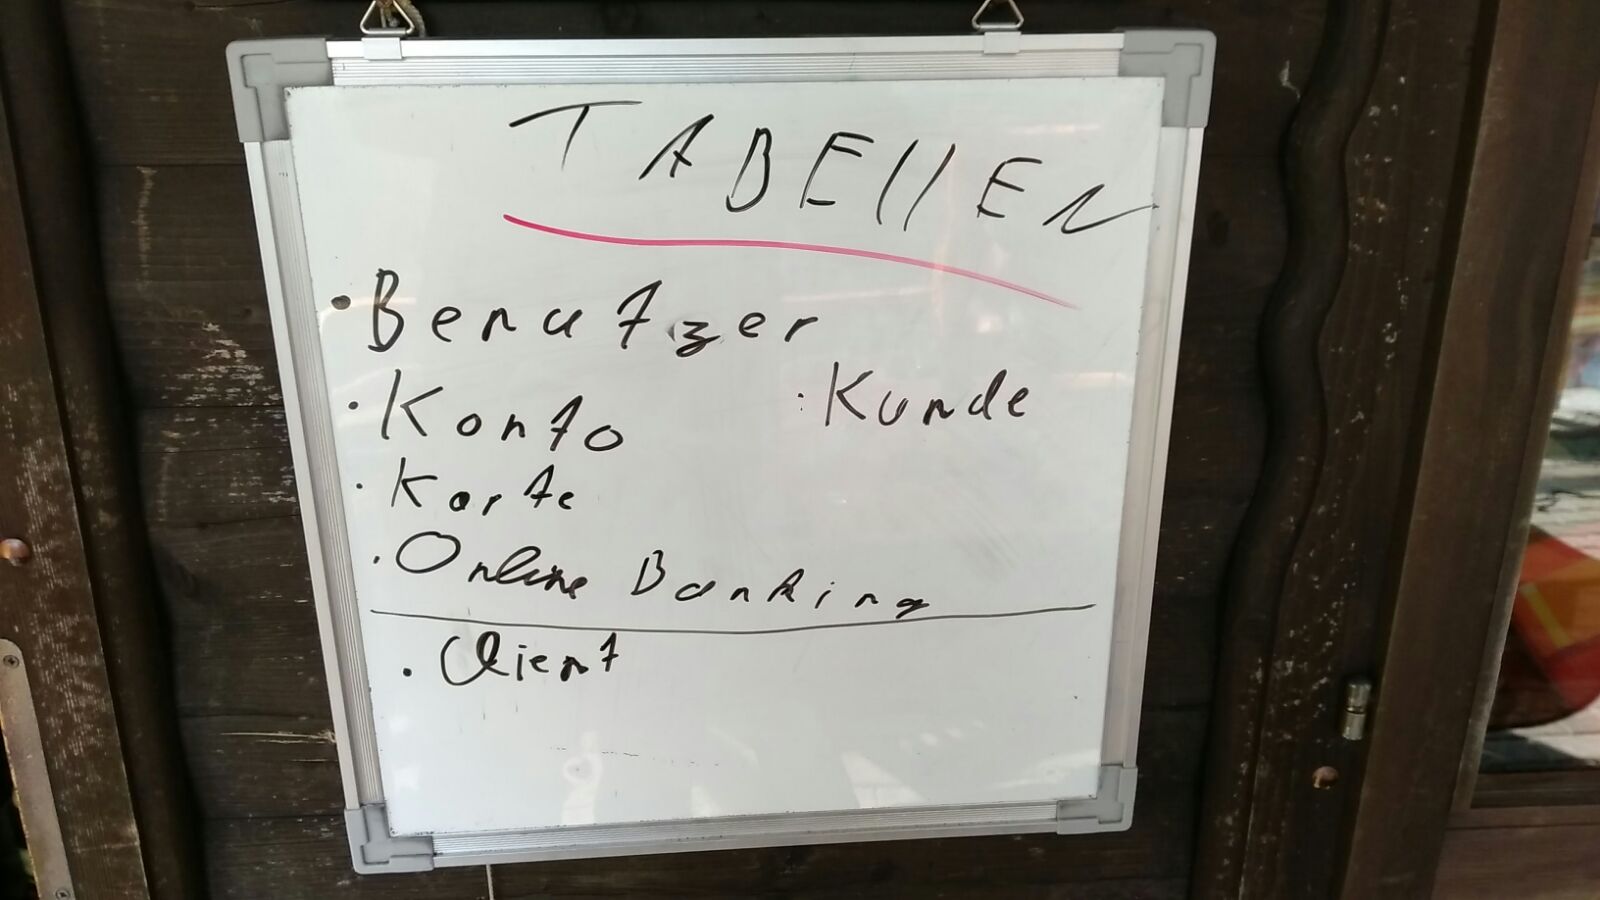 TABEllEN
• Benutzer
• Konto
• Kunde
• Karte
• Online Banking
• Client